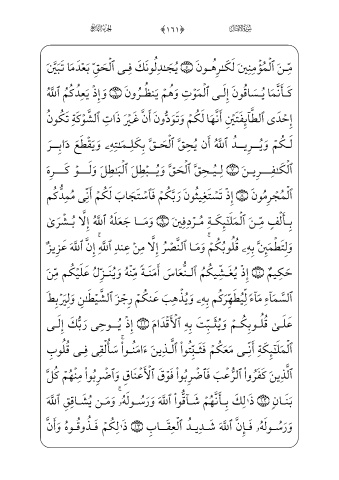 سورة الأنفال ﴿١٦١﴾ الجزء التاسع
مِّنَ ٱلْمُؤْمِنِينَ لَكَٰرِهُونَ ۝٥ يُجَٰدِلُونَكَ فِى ٱلْحَقِّ بَعْدَمَا تَبَيَّنَ
كَأَنَّمَا يُسَاقُونَ إِلَى ٱلْمَوْتِ وَهُمْ يَنظُرُونَ ۝٦ وَإِذْ يَعِدُكُمُ ٱللَّهُ
إِحْدَى ٱلطَّآئِفَتَيْنِ أَنَّهَا لَكُمْ وَتَوَدُّونَ أَنَّ غَيْرَ ذَاتِ ٱلشَّوْكَةِ تَكُونُ
لَكُمْ وَيُرِيدُ ٱللَّهُ أَن يُحِقَّ ٱلْحَقَّ بِكَلِمَٰتِهِۦ وَيَقْطَعَ دَابِرَ
ٱلْكَٰفِرِينَ ۝٧ لِيُحِقَّ ٱلْحَقَّ وَيُبْطِلَ ٱلْبَٰطِلَ وَلَوْ كَرِهَ
ٱلْمُجْرِمُونَ ۝٨ إِذْ تَسْتَغِيثُونَ رَبَّكُمْ فَٱسْتَجَابَ لَكُمْ أَنِّى مُمِدُّكُم
بِأَلْفٍ مِّنَ ٱلْمَلَٰٓئِكَةِ مُرْدِفِينَ ۝٩ وَمَا جَعَلَهُ ٱللَّهُ إِلَّا بُشْرَىٰ
وَلِتَطْمَئِنَّ بِهِۦ قُلُوبُكُمْ ۚ وَمَا ٱلنَّصْرُ إِلَّا مِنْ عِندِ ٱللَّهِ ۚ إِنَّ ٱللَّهَ عَزِيزٌ
حَكِيمٌ ۝١٠ إِذْ يُغَشِّيكُمُ ٱلنُّعَاسَ أَمَنَةً مِّنْهُ وَيُنَزِّلُ عَلَيْكُم مِّنَ
ٱلسَّمَآءِ مَآءً لِّيُطَهِّرَكُم بِهِۦ وَيُذْهِبَ عَنكُمْ رِجْزَ ٱلشَّيْطَٰنِ وَلِيَرْبِطَ
عَلَىٰ قُلُوبِكُمْ وَيُثَبِّتَ بِهِ ٱلْأَقْدَامَ ۝١١ إِذْ يُوحِى رَبُّكَ إِلَى
ٱلْمَلَٰٓئِكَةِ أَنِّى مَعَكُمْ فَثَبِّتُوا۟ ٱلَّذِينَ ءَامَنُوا۟ ۚ سَأُلْقِى فِى قُلُوبِ
ٱلَّذِينَ كَفَرُوا۟ ٱلرُّعْبَ فَٱضْرِبُوا۟ فَوْقَ ٱلْأَعْنَاقِ وَٱضْرِبُوا۟ مِنْهُمْ كُلَّ
بَنَانٍ ۝١٢ ذَٰلِكَ بِأَنَّهُمْ شَآقُّوا۟ ٱللَّهَ وَرَسُولَهُۥ ۚ وَمَن يُشَاقِقِ ٱللَّهَ
وَرَسُولَهُۥ فَإِنَّ ٱللَّهَ شَدِيدُ ٱلْعِقَابِ ۝١٣ ذَٰلِكُمْ فَذُوقُوهُ وَأَنَّ